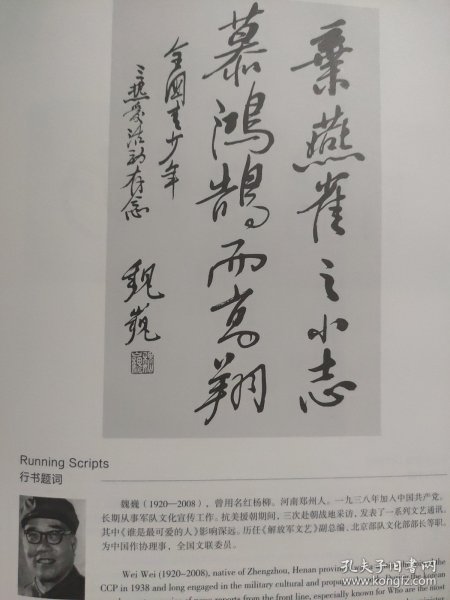 棄燕雀之小志
慕鴻鵠而高翔
全国青少年
三热爱活动存念
魏巍
Running Scripts
行书题词
魏巍（1920—2008），曾用名红杨柳。河南郑州人。一九三八年加入中国共产党。
长期从事军队文化宣传工作。抗美援朝期间，三次赴朝战地采访，发表了一系列文艺通讯。
其中《谁是最可爱的人》影响深远。历任《解放军文艺》副总编、北京部队文化部部长等职。
为中国作协理事，全国文联委员。
Wei Wei (1920-2008), native of Zhengzhou, Henan province
CCP in 1938 and long engaged in the military cultural and
news reports from the front line, especially known for Who are the most
孔夫子旧书网